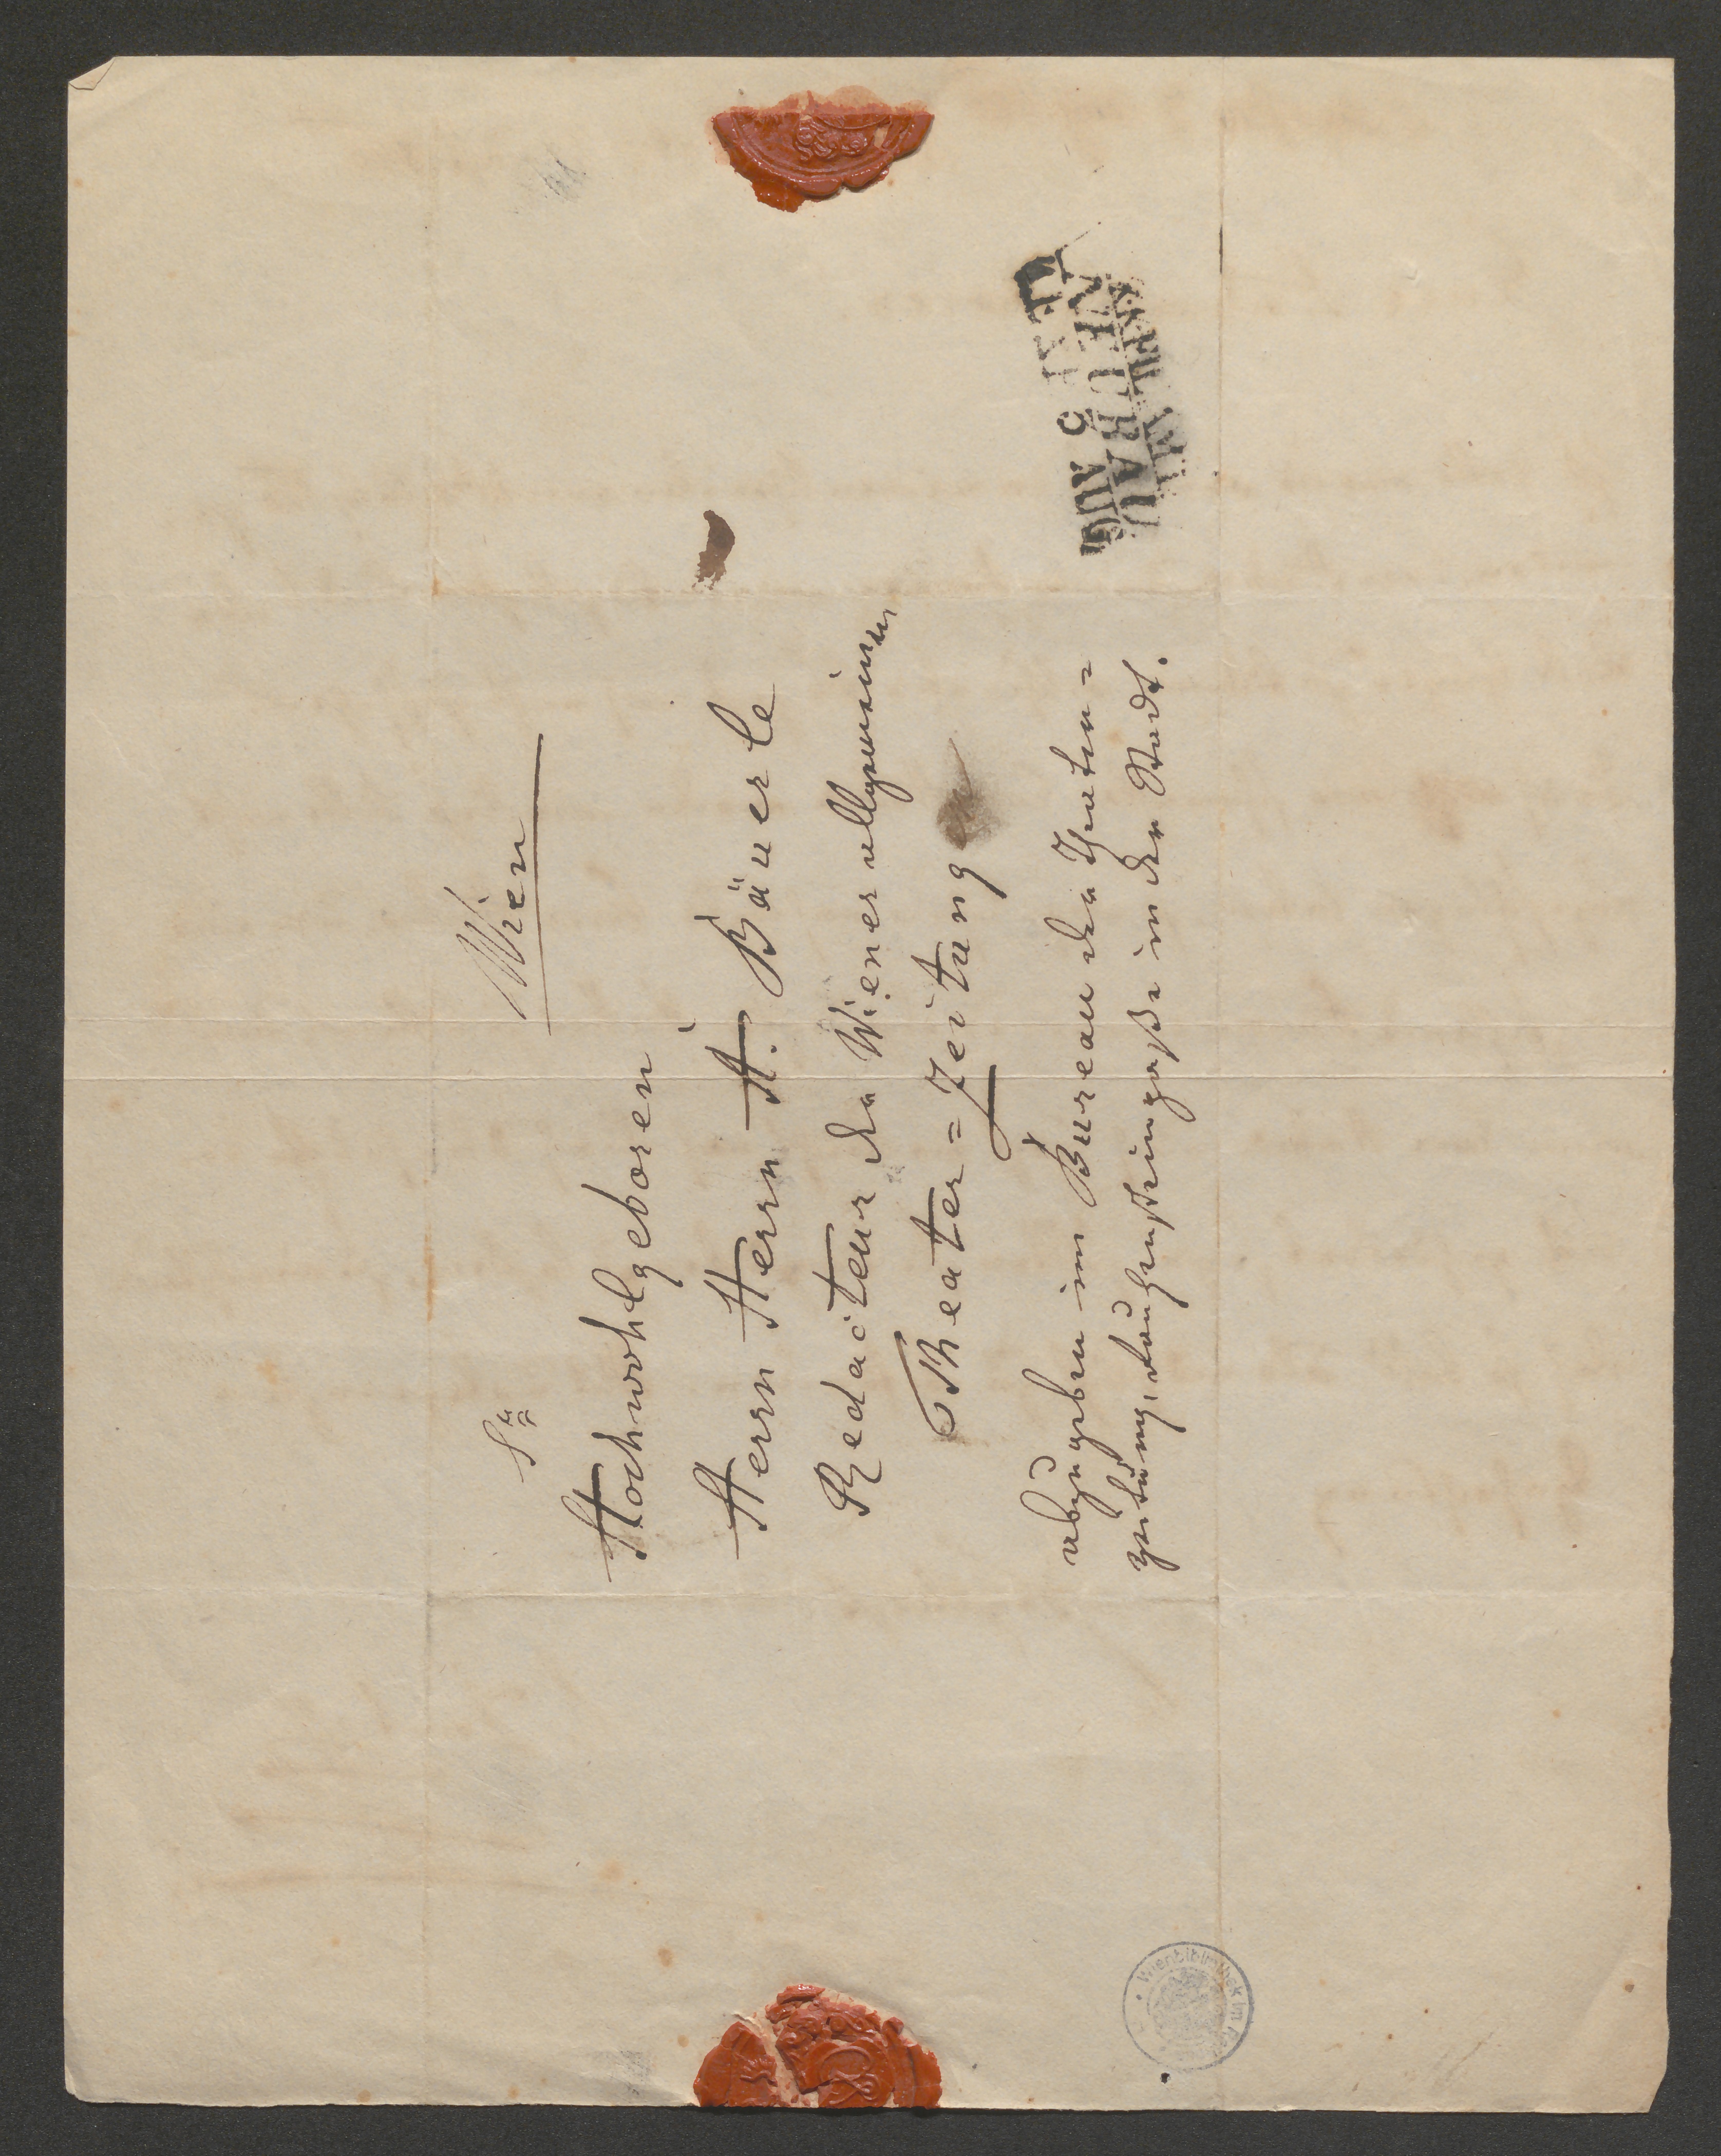 Wien
Sr
Hochwohlgeboren
Herrn Herrn A. Bäuerle
Redacteur der Wiener allgemeinen
Theater=Zeitung
abzugeben im Bureau der Theater=
zeitung, Rauhensteingaße in der Stadt.
AUG
Wienbibliothek im